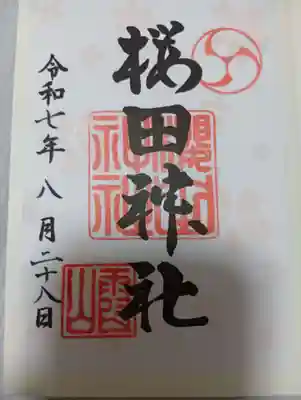 桜田神社
櫻田
神社
令和七年八月二十八日
霞山